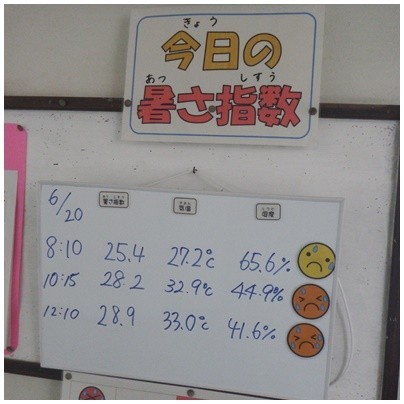 きょう
今日の
あつ しすう
暑さ指数
6/20 暑さ指数 気温 湿度
8:10 25.4 27.2℃ 65.6%
10:15 28.2 32.9℃ 44.9%
12:10 28.9 33.0℃ 41.6%